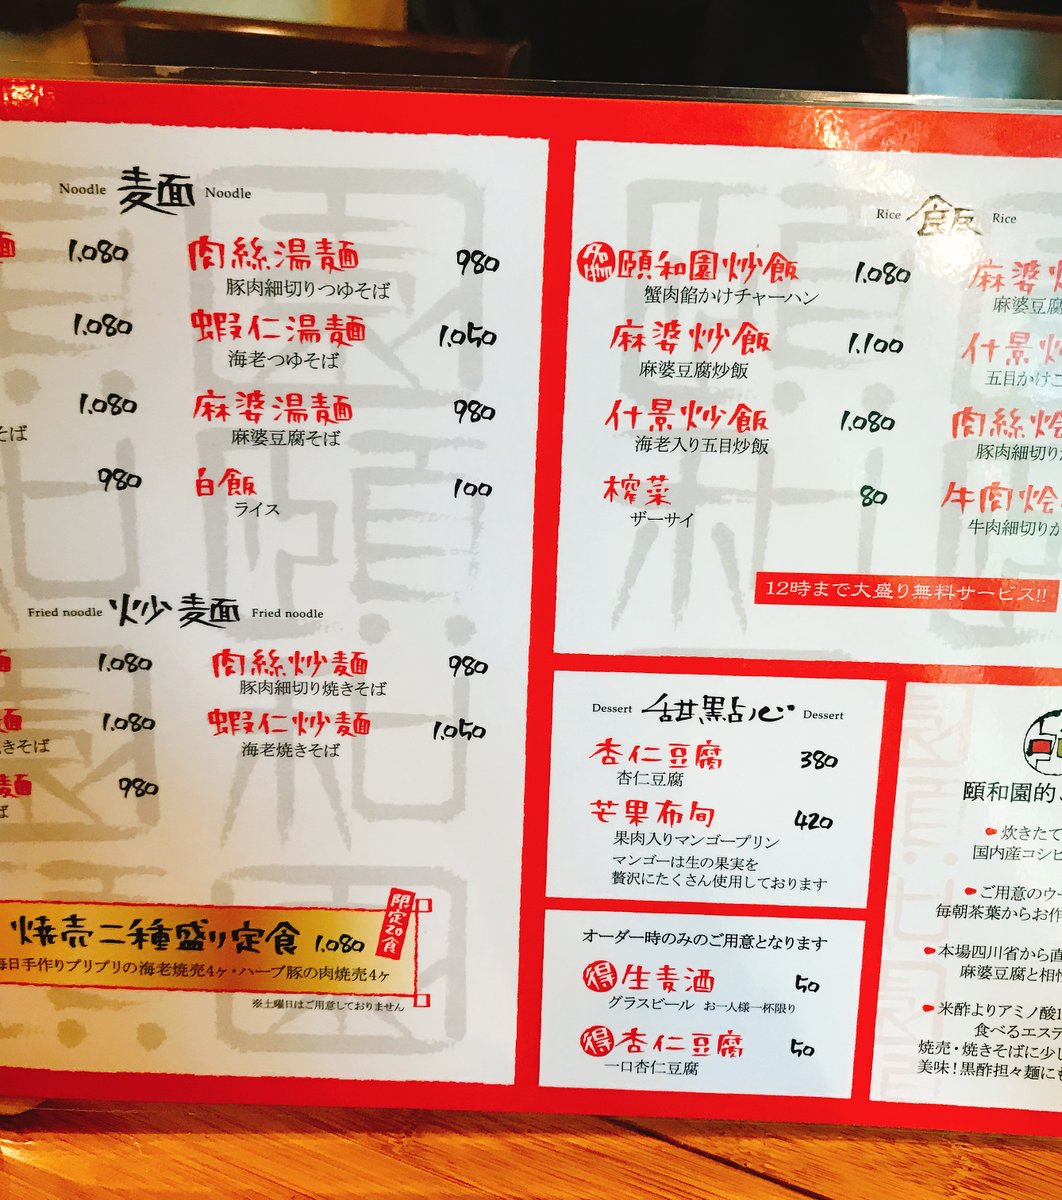 Noodle 麦面 Noodle
1.080
肉絲湯麺 980
豚肉細切りつゆそば
1.080
蝦仁湯麺 1.050
海老つゆそば
1.080
麻婆湯麺 980
麻婆豆腐そば
そば
980
白飯 100
ライス
Fried noodle 炒麦面 Fried noodle
1.080
肉絲炒麺 980
豚肉細切り焼きそば
1.080
蝦仁炒麺 1.050
海老焼きそば
焼きそば
980
限定20食
焼売二種盛り定食 1.080
毎日手作りプリプリの海老焼売4ヶ・ハーブ豚の肉焼売4ヶ
※土曜日はご用意しておりません
Rice 飯 Rice
頤和園炒飯 1.080
蟹肉餡かけチャーハン
麻婆炒飯 1.100
麻婆豆腐炒飯
什景炒飯 1.080
海老入り五目炒飯
榨菜 80
ザーサイ
麻婆
麻婆豆腐
什景
五目かけご
肉絲烩
豚肉細切り
牛肉烩
牛肉細切りか
12時まで大盛り無料サービス!!
Dessert 甜點心 Dessert
杏仁豆腐 380
杏仁豆腐
芒果布甸 420
果肉入りマンゴープリン
マンゴーは生の果実を
贅沢にたくさん使用しております
オーダー時のみのご用意となります
得 生麦酒 50
グラスビール お一人様一杯限り
得 杏仁豆腐 50
一口杏仁豆腐
頤和園的
炊きたて
国内産コシヒ
ご用意のウー
毎朝茶葉からお作
本場四川省から直
麻婆豆腐と相
米酢よりアミノ酸1
食べるエステ
焼売・焼きそばに少し
美味！黒酢担々麺にも